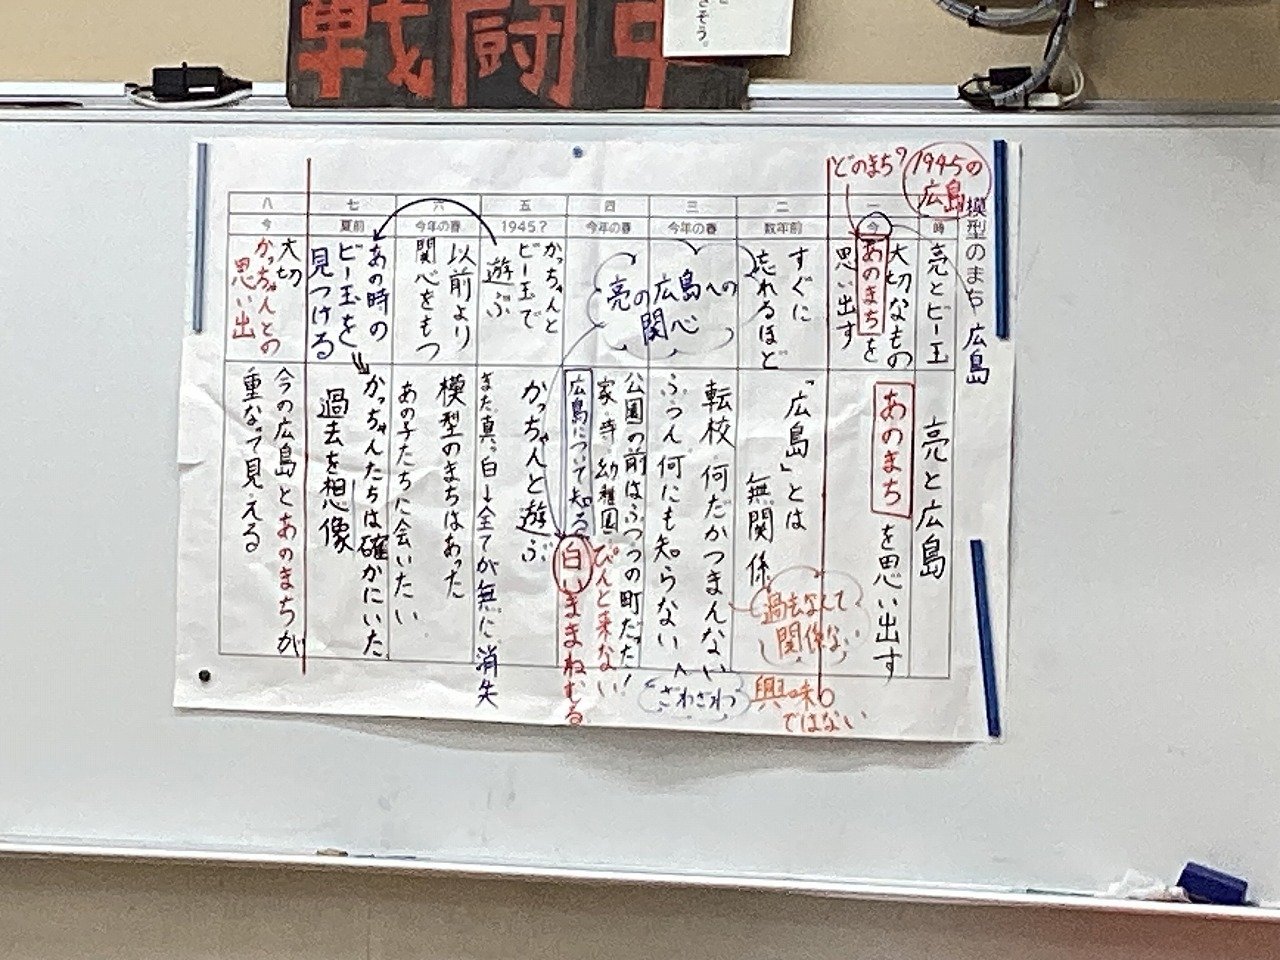 戦闘中
さそう。
模型のまち 広島
1945の
広島
どのまち?
時
亮とビー玉
亮と広島
一
今
大切なもの
あのまちを
思い出す
あのまち
を思い出す
二
数年前
すぐに
忘れるほど
「広島」とは
無関係
過去なんて
関係ない
興味0
ではない
三
今年の春
四
今年の春
亮の広島への
関心
転校 何だかつまんない
ふつん何にも知らない
ざわざわ
公園の前はふつうの町だった!
家・寺・幼稚園
ぴんと来ない
広島について知る
白いままねむる
五
1945?
かっちゃんと
ビー玉で
遊ぶ
かっちゃんと遊ぶ
まだ真っ白↓全てが無に消失
六
今年の春
以前より
関心をもつ
模型のまちはあった
あの子たちに会いたい
七
夏前
あの時の
ビー玉を
見つける
かっちゃんたちは確かにいた
過去を想像
八
今
大切
かっちゃんとの
思い出
今の広島とあのまちが
重なって見える